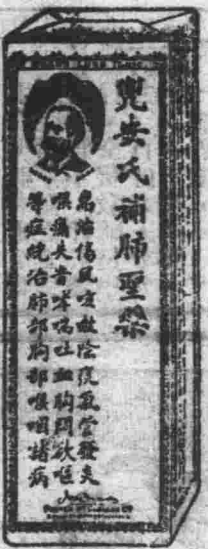 兜安氏補肺聖藥
專治傷風咳嗽陰痰氣管發炎
喉痛失音哮喘吐血胸悶欲嘔
等症統治肺部胸部喉咽諸病